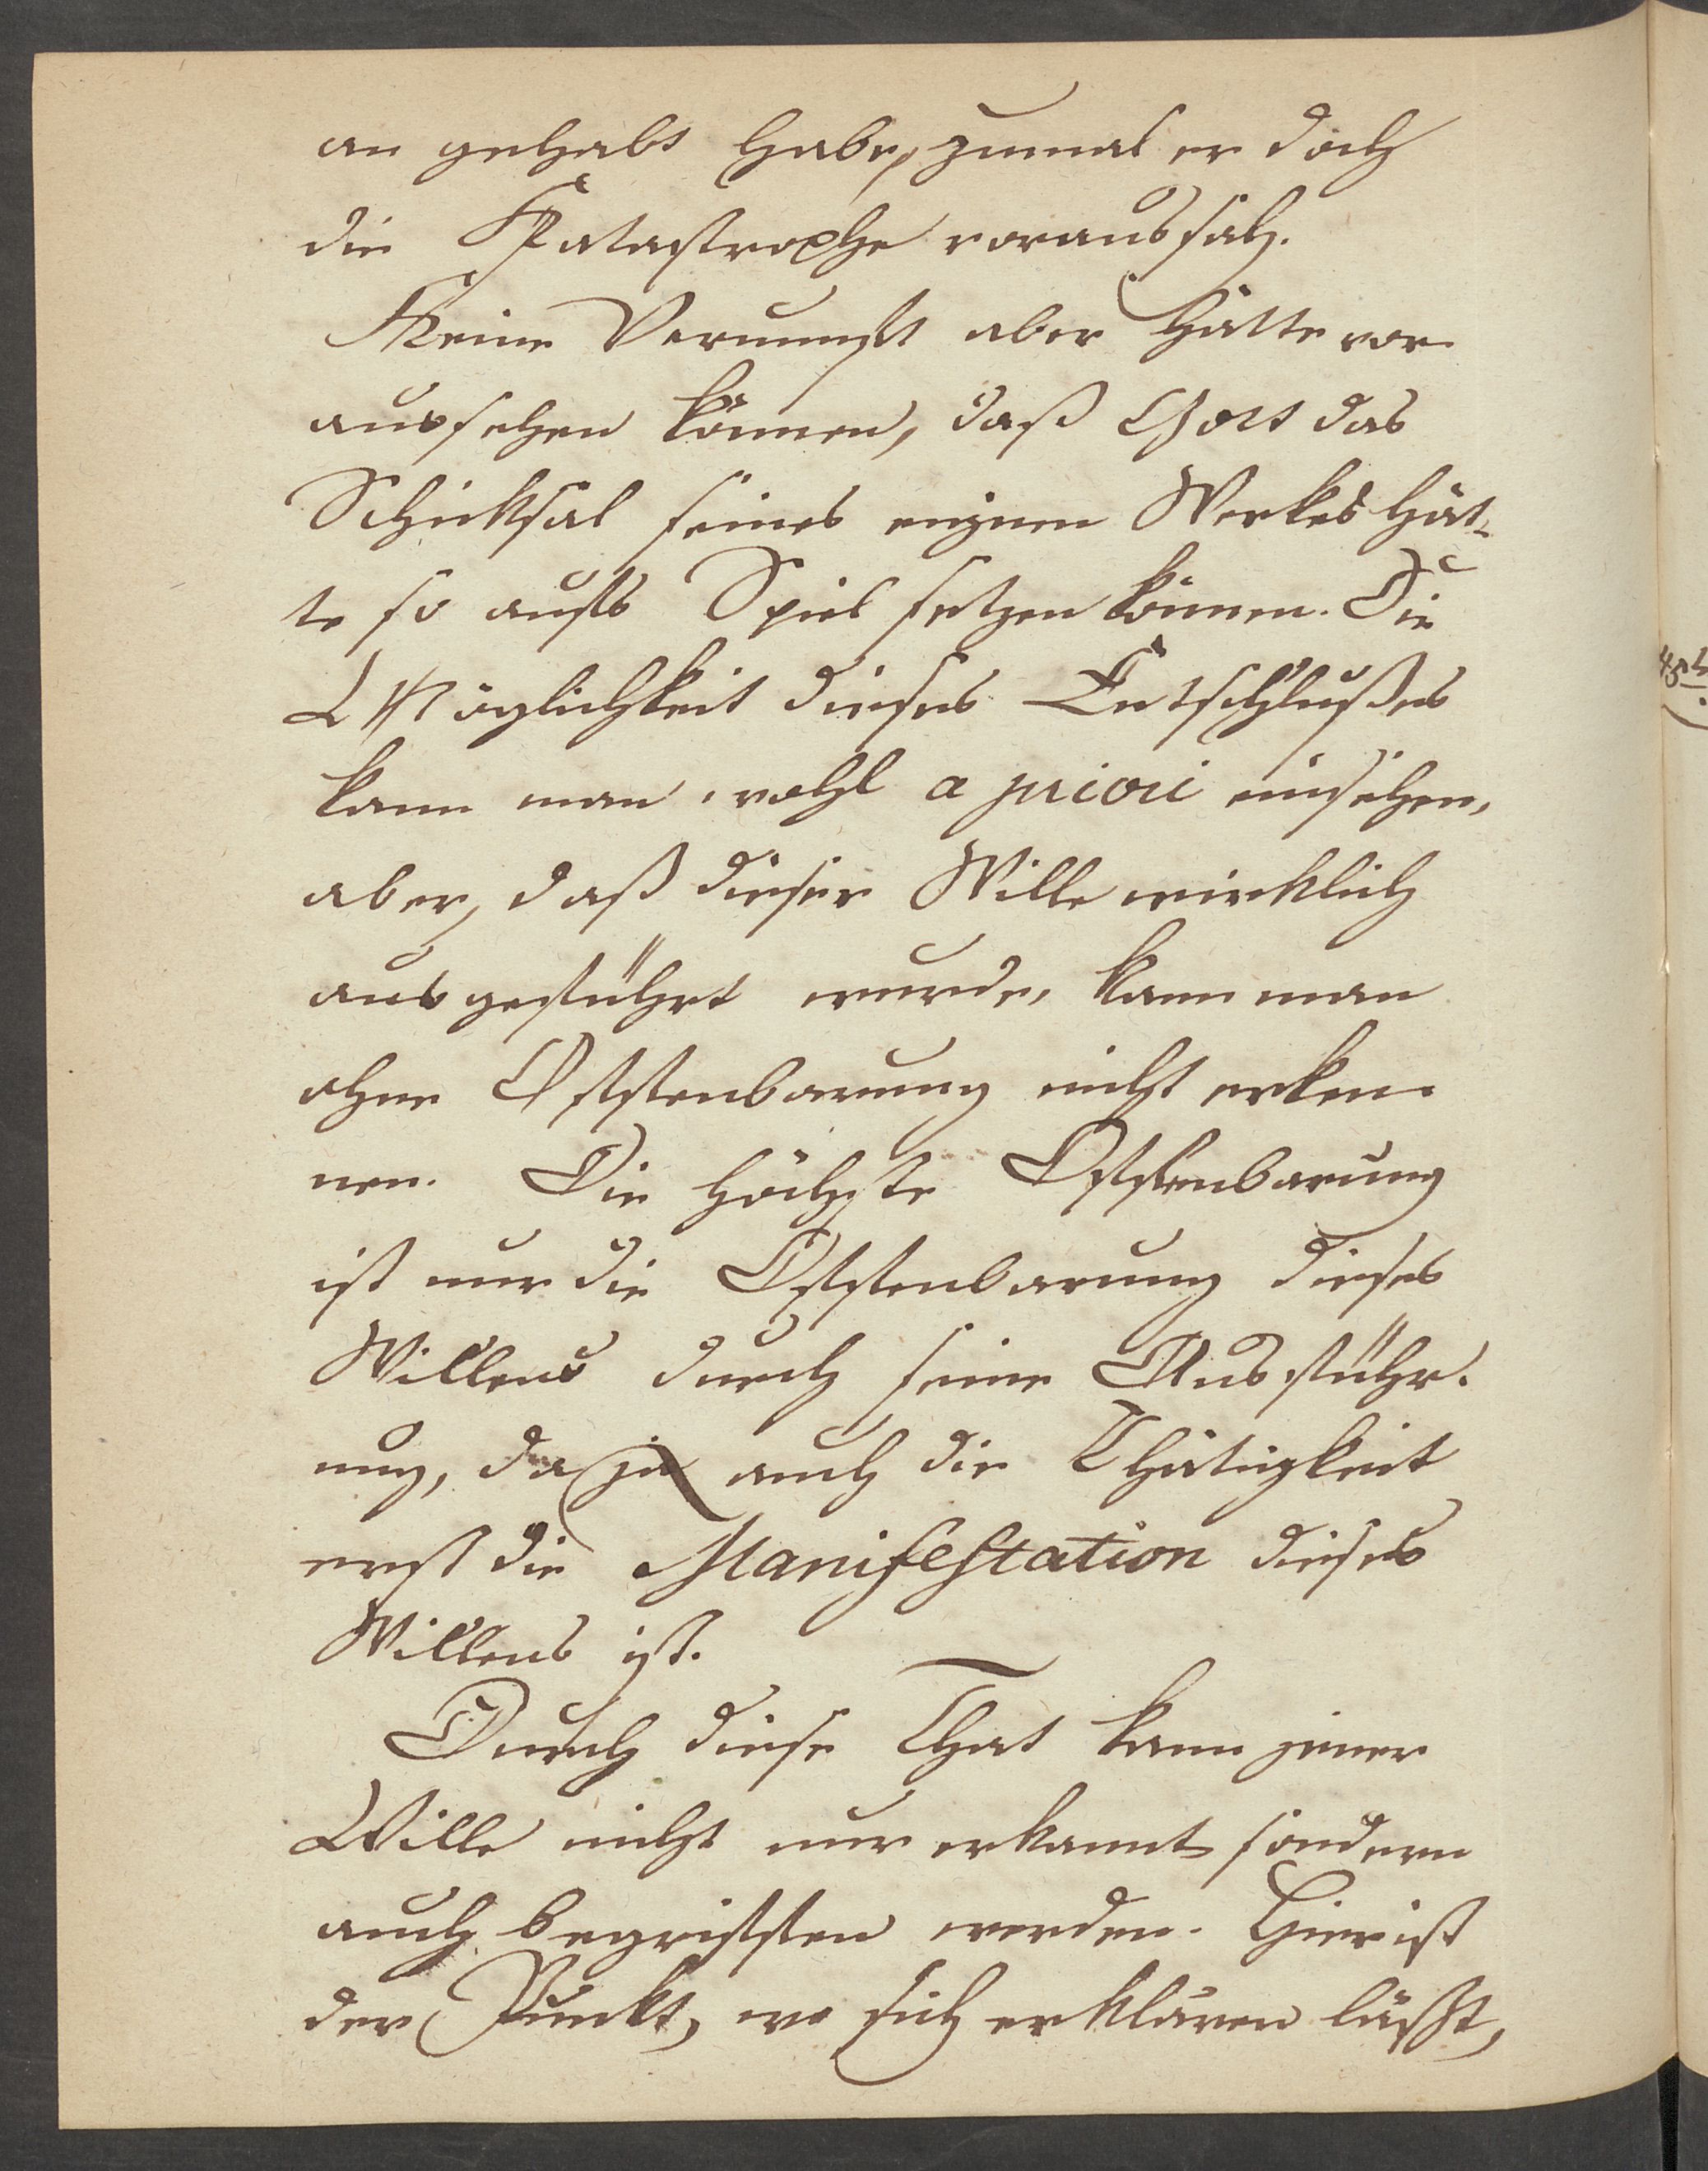 an gehabt habe, zumal er doch
die Katastrophe voraussah.
Keine Vernunft aber hätte vor
aussehen können, daß Gott das
Schicksal seines eignen Werkes hät-
te so aufs Spiel setzen können. Die
Möglichkeit dieses Entschlußes
kann man wohl a priori einsehen,
aber, daß dieser Wille wirklich
ausgeführt wurde, kann man
ohne Offenbarung nicht erken-
nen. Die höchste Offenbarung
ist nur die Offenbarung dieses
Willens durch seine Ausführ-
ung, da ja auch die Thätigkeit
erst die Manifestation dieses
Willens ist.
Durch diese That kann jener
Wille nicht nur erkannt sondern
auch begriffen werden. Hier ist
der Punkt, wo sich erklären läßt,